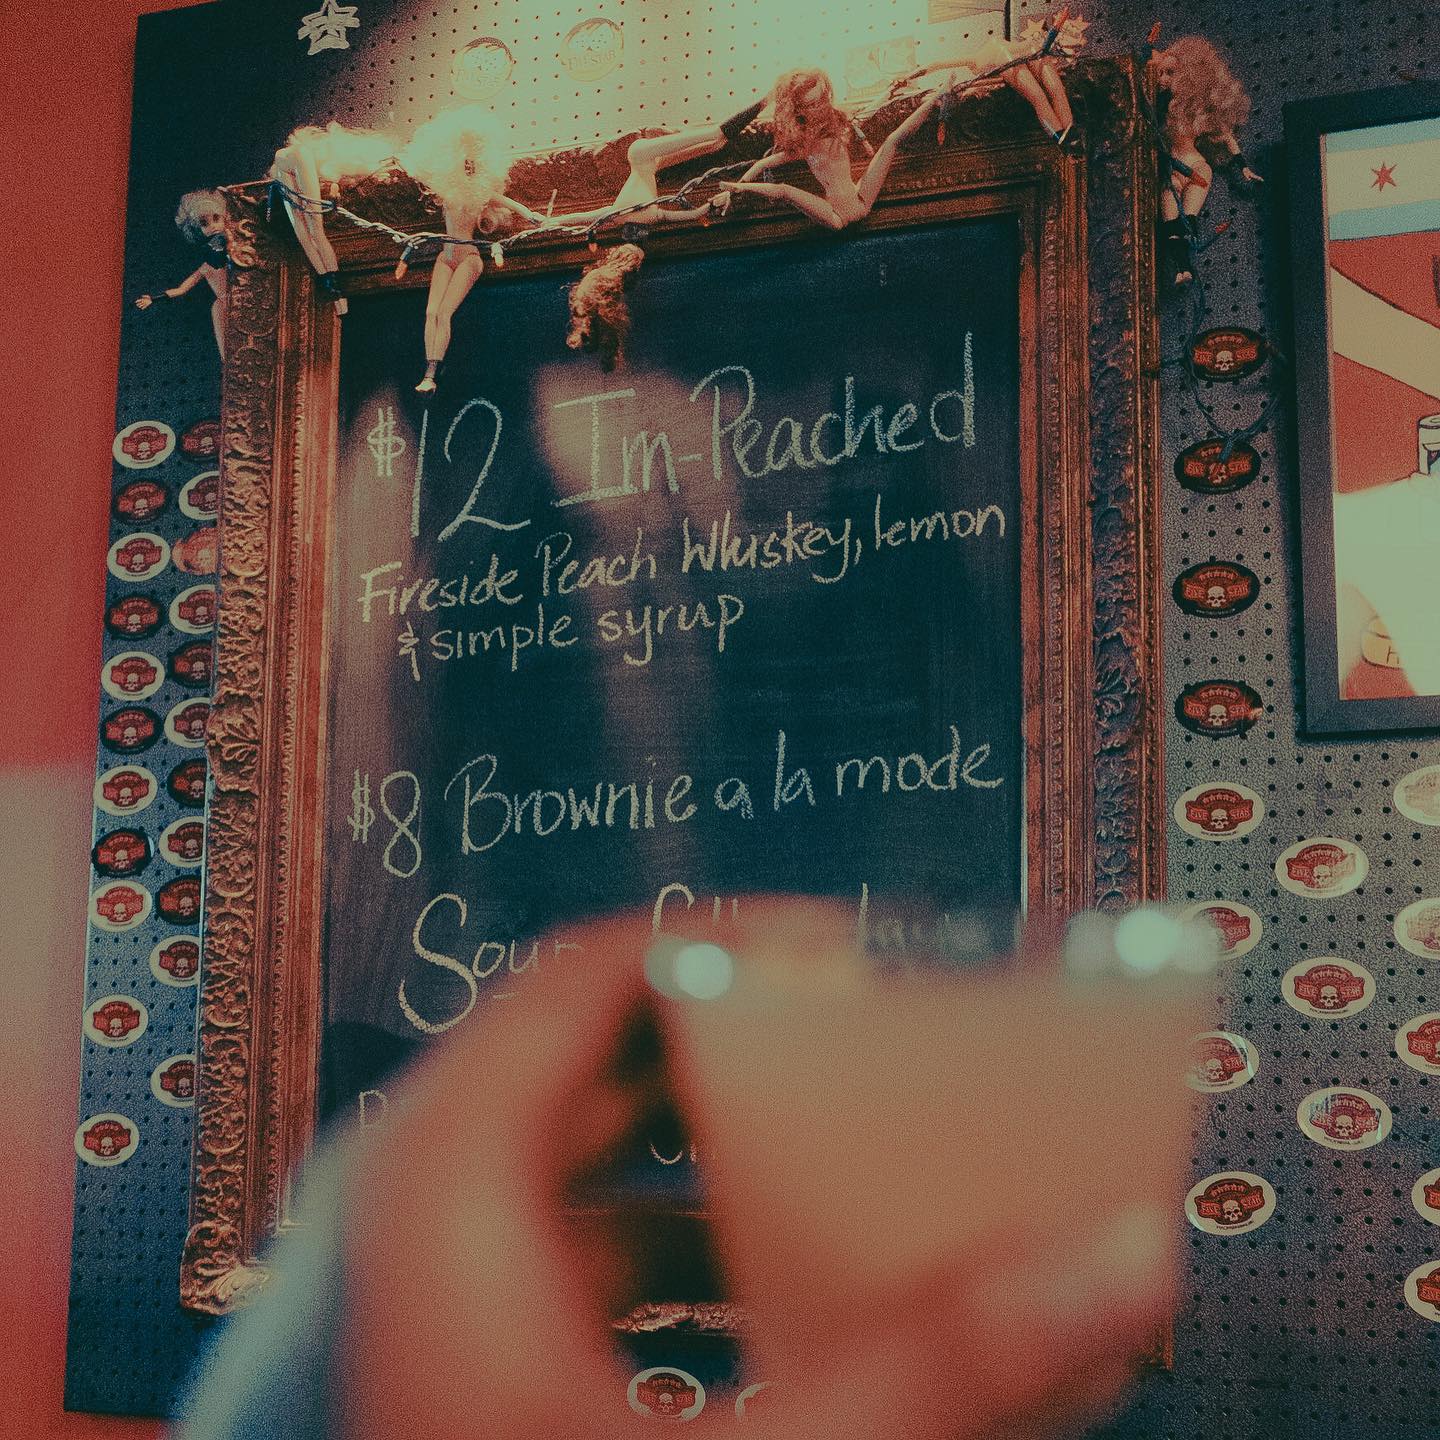 $12 Im-Peached
Fireside Peach Whiskey, lemon
& simple syrup
$8 Brownie a la mode
Sour
FIVE STAR